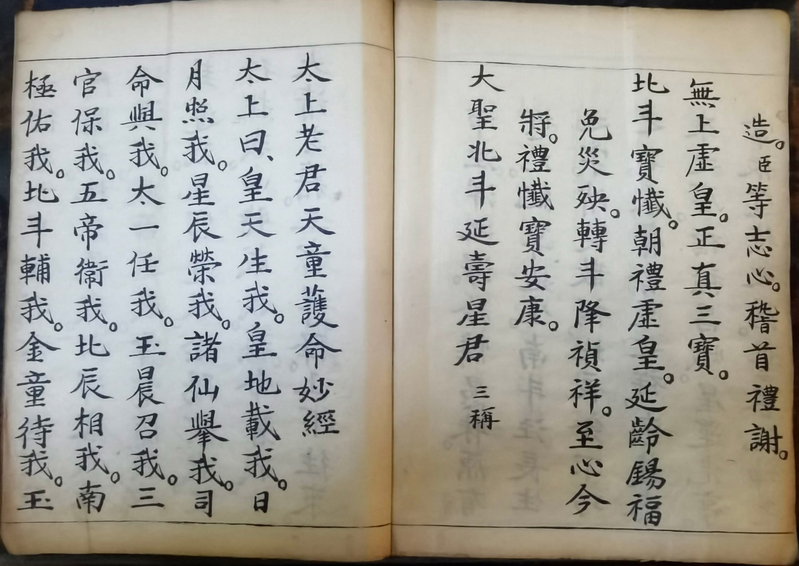 造。臣等志心。稽首禮謝。
無上虛皇。正真三寶。
北斗寶懺。朝禮虛皇。延齡錫福
免災殃。轉斗降禎祥。至心今
將。禮懺寶安康。
大聖北斗延壽星君 三稱
太上老君天童護命妙經
太上曰、皇天生我。皇地載我。日
月照我。星辰榮我。諸仙舉我。司
命與我。太一任我。玉晨召我。三
官保我。五帝衞我。北辰相我。南
極佑我。北斗輔我。金童待我。玉